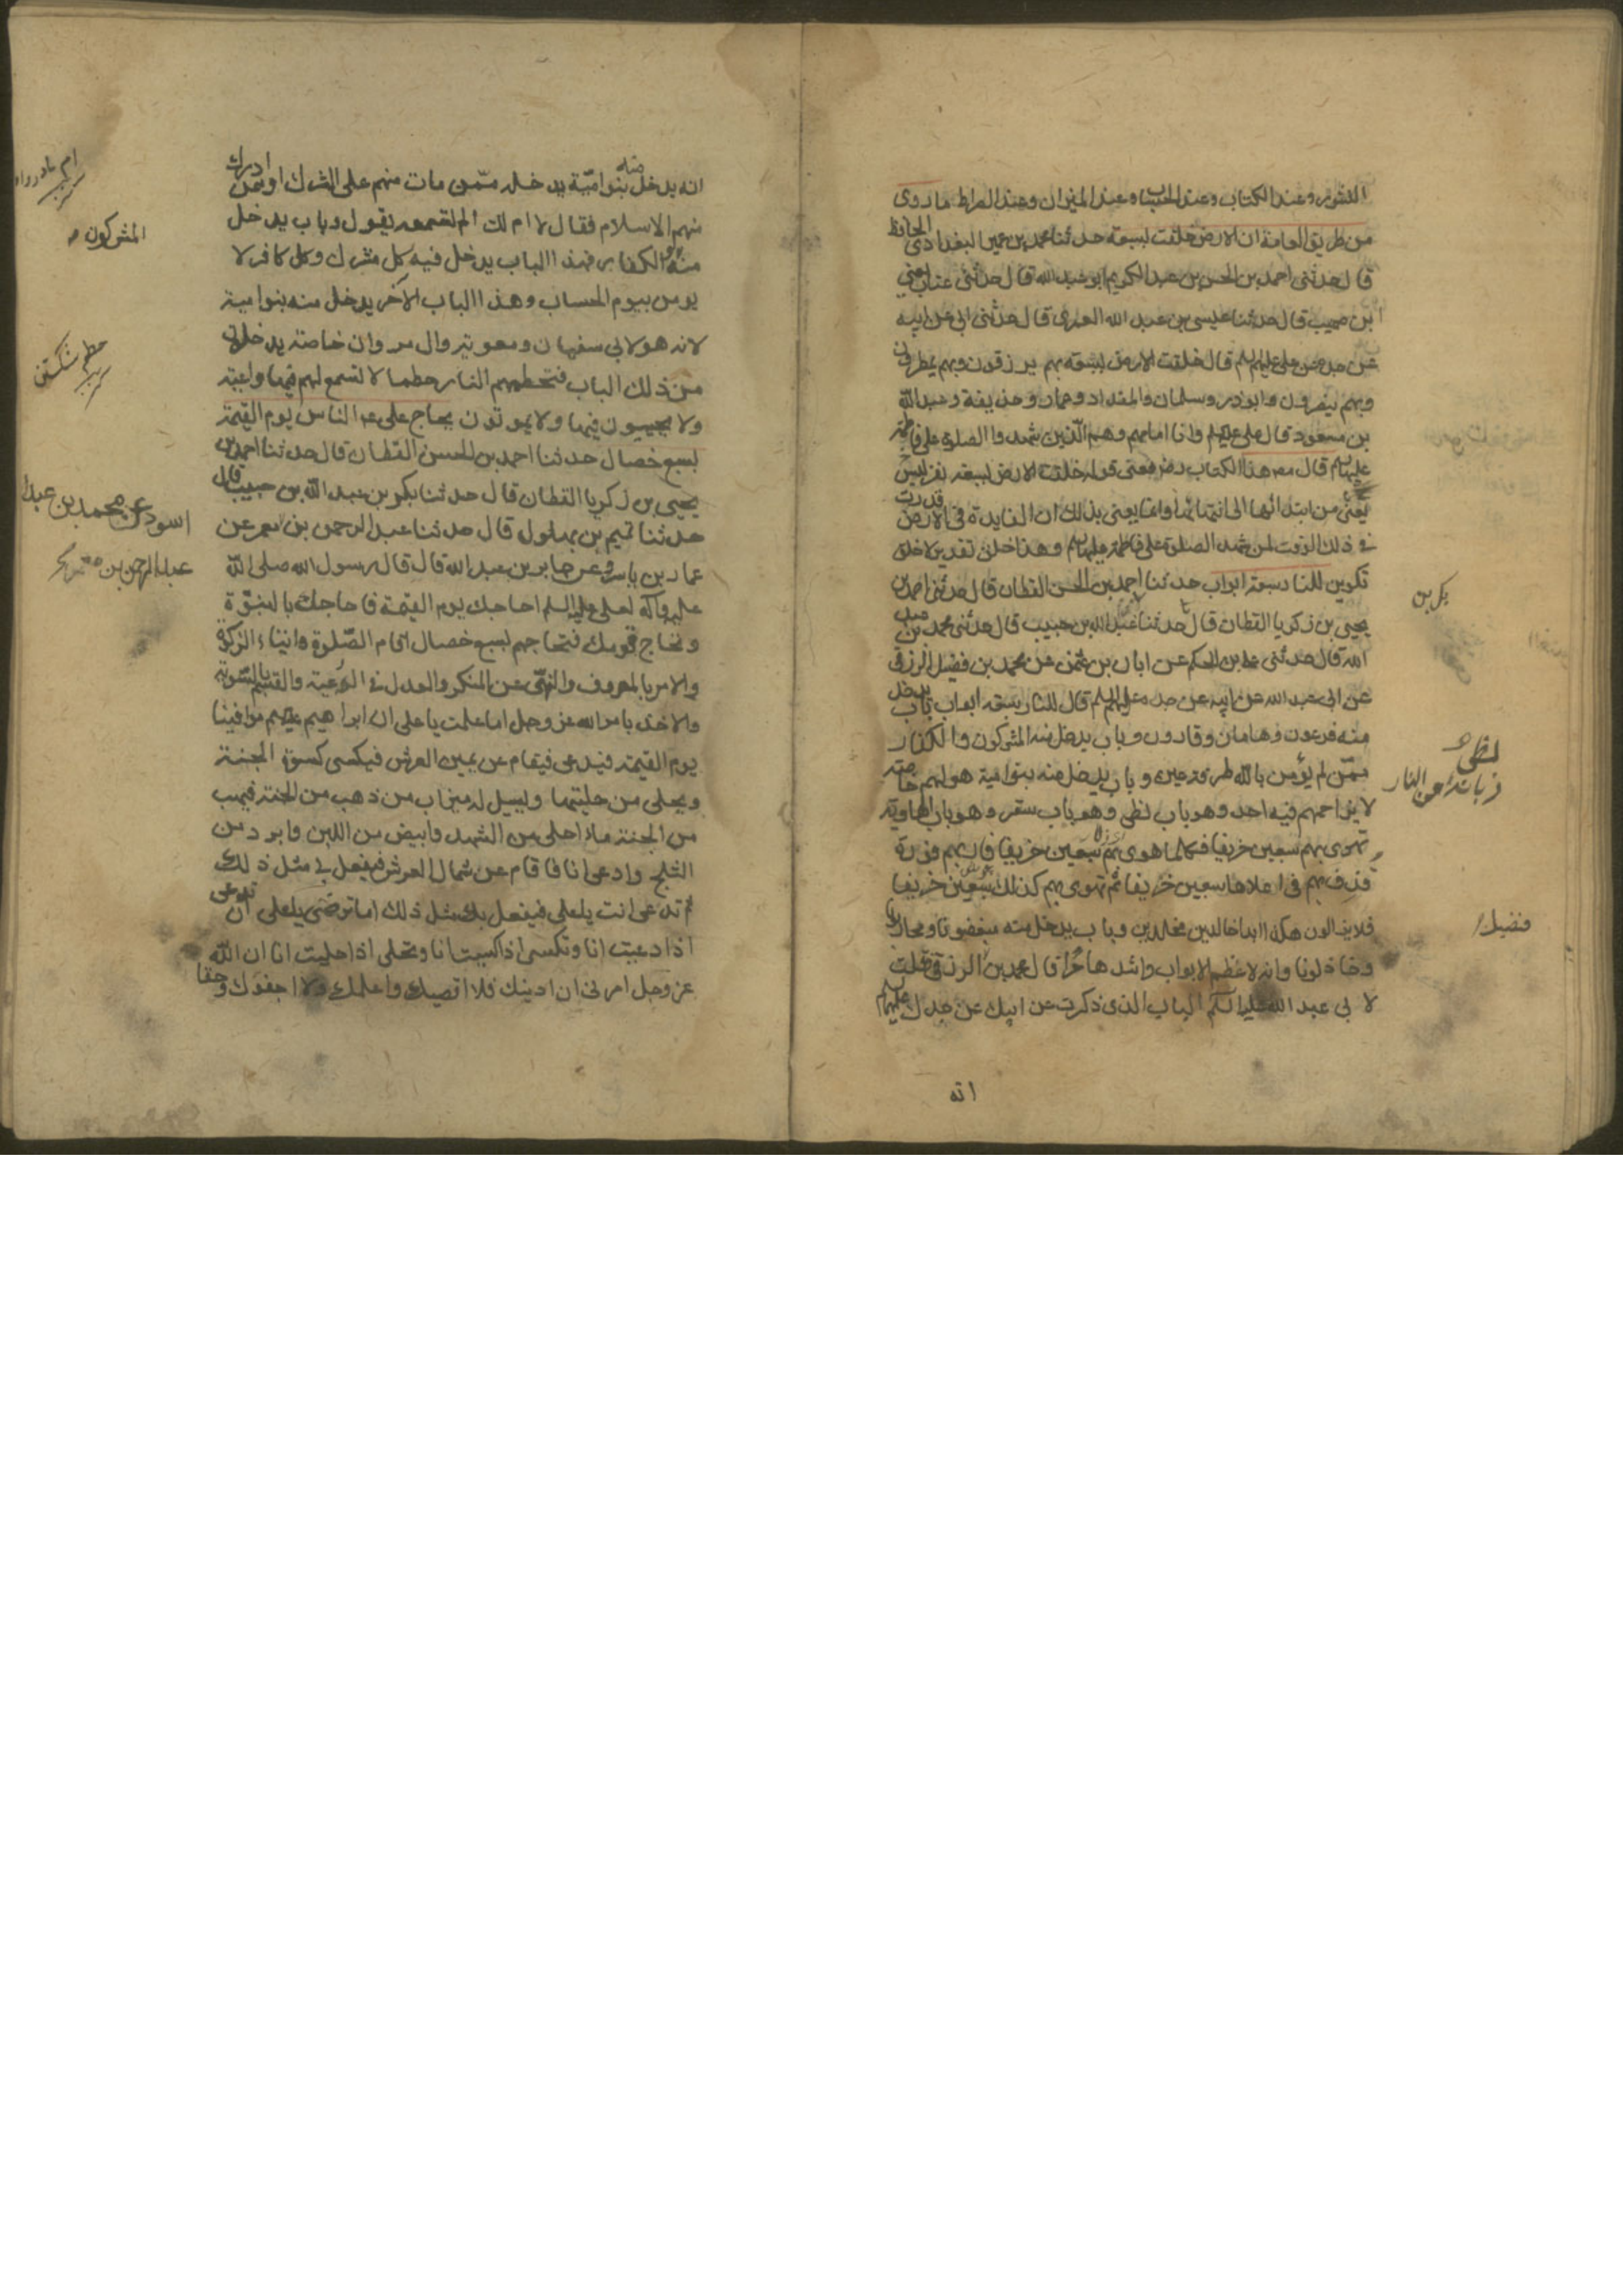 النشور وعند الكتاب وعند الحساب وعند الميزان وعند الصراط ما روى
من طريق العامة ان الارض خلقت لسبعة حدثنا محمد بن عمير البغدادي الحافظ
قال حدثني احمد بن الحسن بن عبد الكريم ابو عبد الله قال حدثني عتاب يعني
ابن صهيب قال حدثنا عيسى بن عبد الله العمرى قال حدثني ابي عن ابيه
عن جده عن علي عليهم السلم قال خلقت الارض لسبعة بهم يرزقون وبهم يمطرون
وبهم ينصرون وابوذر وسلمان والمقداد وعمار وحذيفة وعبد الله
بن مسعود قال علي عليه السلم وانا امامهم وهم الذين شهدوا الصلوة على فاطمة
عليها السلم قال مص هذا الكتاب رضه معنى قوله خلقت الارض لسبعة نفر ليس
يعنى من ابتدائها الى انتهائها وانما يعنى بذلك ان الفايدة في الارض قدرت
في ذلك الوقت لمن شهد الصلوة على فاطمة عليها السلم وهذا خلق تقدير لا خلق
تكوين للنار سبعة ابواب حدثنا احمد بن الحسن القطان قال حدثني احمد بن
يحيى بن زكريا القطان قال حدثنا عبد الله بن حبيب قال حدثني محمد بن عبد
الله قال حدثني علي بن الحكم عن ابان بن عثمن عن محمد بن فضيل الرزقي
عن ابي عبد الله عن ابيه عن جده عليهم السلم قال للنار سبعة ابواب باب يدخل
منه فرعون وهامان وقارون وباب يدخل منه المشركون والكفار
ممن لم يؤمن بالله طرفة عين وباب يدخل منه بنو امية هو لهم خاصة
لا يزاحمهم فيه احد وهو باب لظى وهو باب سقر وهو باب الهاوية
تهوى بهم سبعين خريفا فكلما هوى بهم سبعين خريفا فار بهم فورة
قذف بهم في اعلاها سبعين خريفا ثم تهوى بهم كذلك سبعين خريفا
فلا يزالون هكذا ابدا خالدين مخلدين وباب يدخل منه مبغضونا ومحاربونا
وخاذلونا وانه لاعظم الابواب واشدها حرا قال محمد بن الرزقي فقلت
لابي عبد الله عليه السلم الباب الذى ذكرت عن ابيك عن جدك عليهما السلم
انه
بكر بن
لظى
زبانهٔ آتش النار
فضيل
انه يدخل منه بنو امية يدخله ممن مات منهم على الشرك او ممن ادرك
منهم الاسلام فقال لا ام لك الم تسمعه يقول وباب يدخل
منه والكفار فهذا الباب يدخل فيه كل مشرك وكل كافر لا
يومن بيوم الحساب وهذا الباب الآخر يدخل منه بنو امية
لانه هو لابي سفيان ومعوية وال مروان خاصة يدخلون
من ذلك الباب فتحطمهم النار حطما لا تسمع لهم فيها واعية
ولا يحيون فيها ولا يموتون يحاج علي ع الناس يوم القيمة
بسبع خصال حدثنا احمد بن الحسن القطان قال حدثنا احمد بن
يحيى بن زكريا القطان قال حدثنا بكر بن عبد الله بن حبيب قال
حدثنا تميم بن بهلول قال حدثنا عبد الرحمن بن معمر عن
عمار بن ياسر وعن جابر بن عبد الله قال قال رسول الله صلى الله
عليه وآله لعلي عليه السلم احاجك يوم القيمة فاحاجك بالنبوة
وتحاج قومك فتحاجهم بسبع خصال اقام الصلوة وايتاء الزكوة
والامر بالمعروف والنهى عن المنكر والعدل في الرعية والقسم بالسوية
والاخذ بامر الله عز وجل اما علمت يا علي ان ابراهيم عليه السلم موافينا
يوم القيمة فيدعى فيقام عن يمين العرش فيكسى كسوة الجنة
ويحلى من حليتها ويسيل له ميزاب من ذهب من الجنة فيهب
من الجنة ماء احلى من الشهد وابيض من اللبن وابرد من
الثلج وادعى انا فاقام عن شمال العرش فيفعل بي مثل ذلك
ثم تدعى انت يا علي فيفعل بك مثل ذلك اما ترضى يا علي ان تدعى
اذا دعيت انا وتكسى اذا كسيت انا وتحلى اذا حليت انا ان الله
عز وجل امرنى ان ادنيك فلا اقصيك واعلمك ولا اجفوك وحقا
المشركون ص
حطم شكستن
اسود عن محمد بن عبد
عبد الرحمن بن